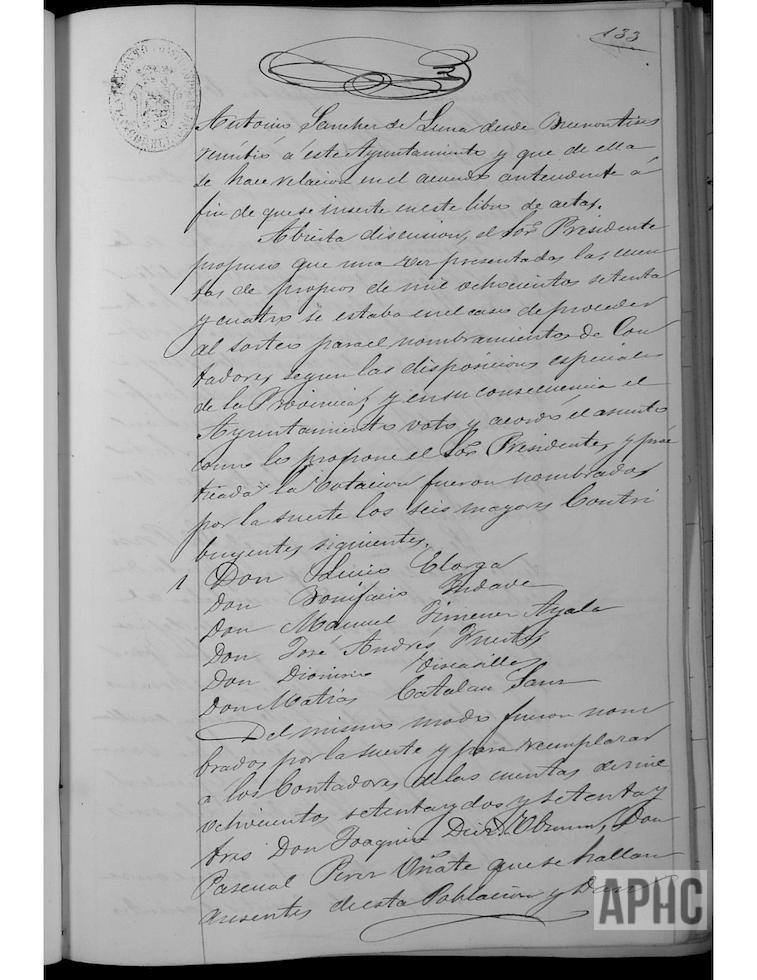 133
Antonio Sanchez de Luna desde Buenos Aires
remitió á este Ayuntamiento y que de ella
se hace relacion en el acuerdo antecedente á
fin de que se inserte en este libro de actas.
Abierta discusion, el Sor Presidente
propuso que una vez presentadas las cuen
tas de propios de mil ochocientos setenta
y cuatro se estaba en el caso de proceder
al sorteo para el nombramiento de Con
tadores segun las disposicions especiales
de la Provincia, y en su consecuencia el
Ayuntamiento votó y acordó el asunto
como lo propone el Sor Presidente, y prac
ticada la votacion fueron nombrados
por la suerte los seis mayores Contri
buyentes siguientes.
1 Don Elorga
Don Bonifacio Indave
Don Manuel Jimenez Ayala
Don José Andrés Fuertes
Don Dionisio
Don Matias Catalan Sanz
Del mismo modo fueron nom
brados por la suerte y para reemplazar
a los Contadores de las cuentas de mil
ochocientos setenta y dos y setenta y
tres Don Joaquin Don
Pascual Perez Oñate que se hallan
ausentes de esta Poblacion y Don
APHC